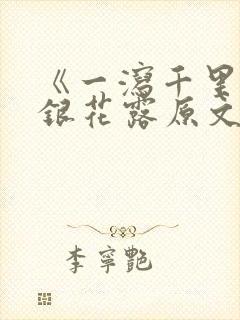 《一瀉千里
銀花露原文
李寧艷